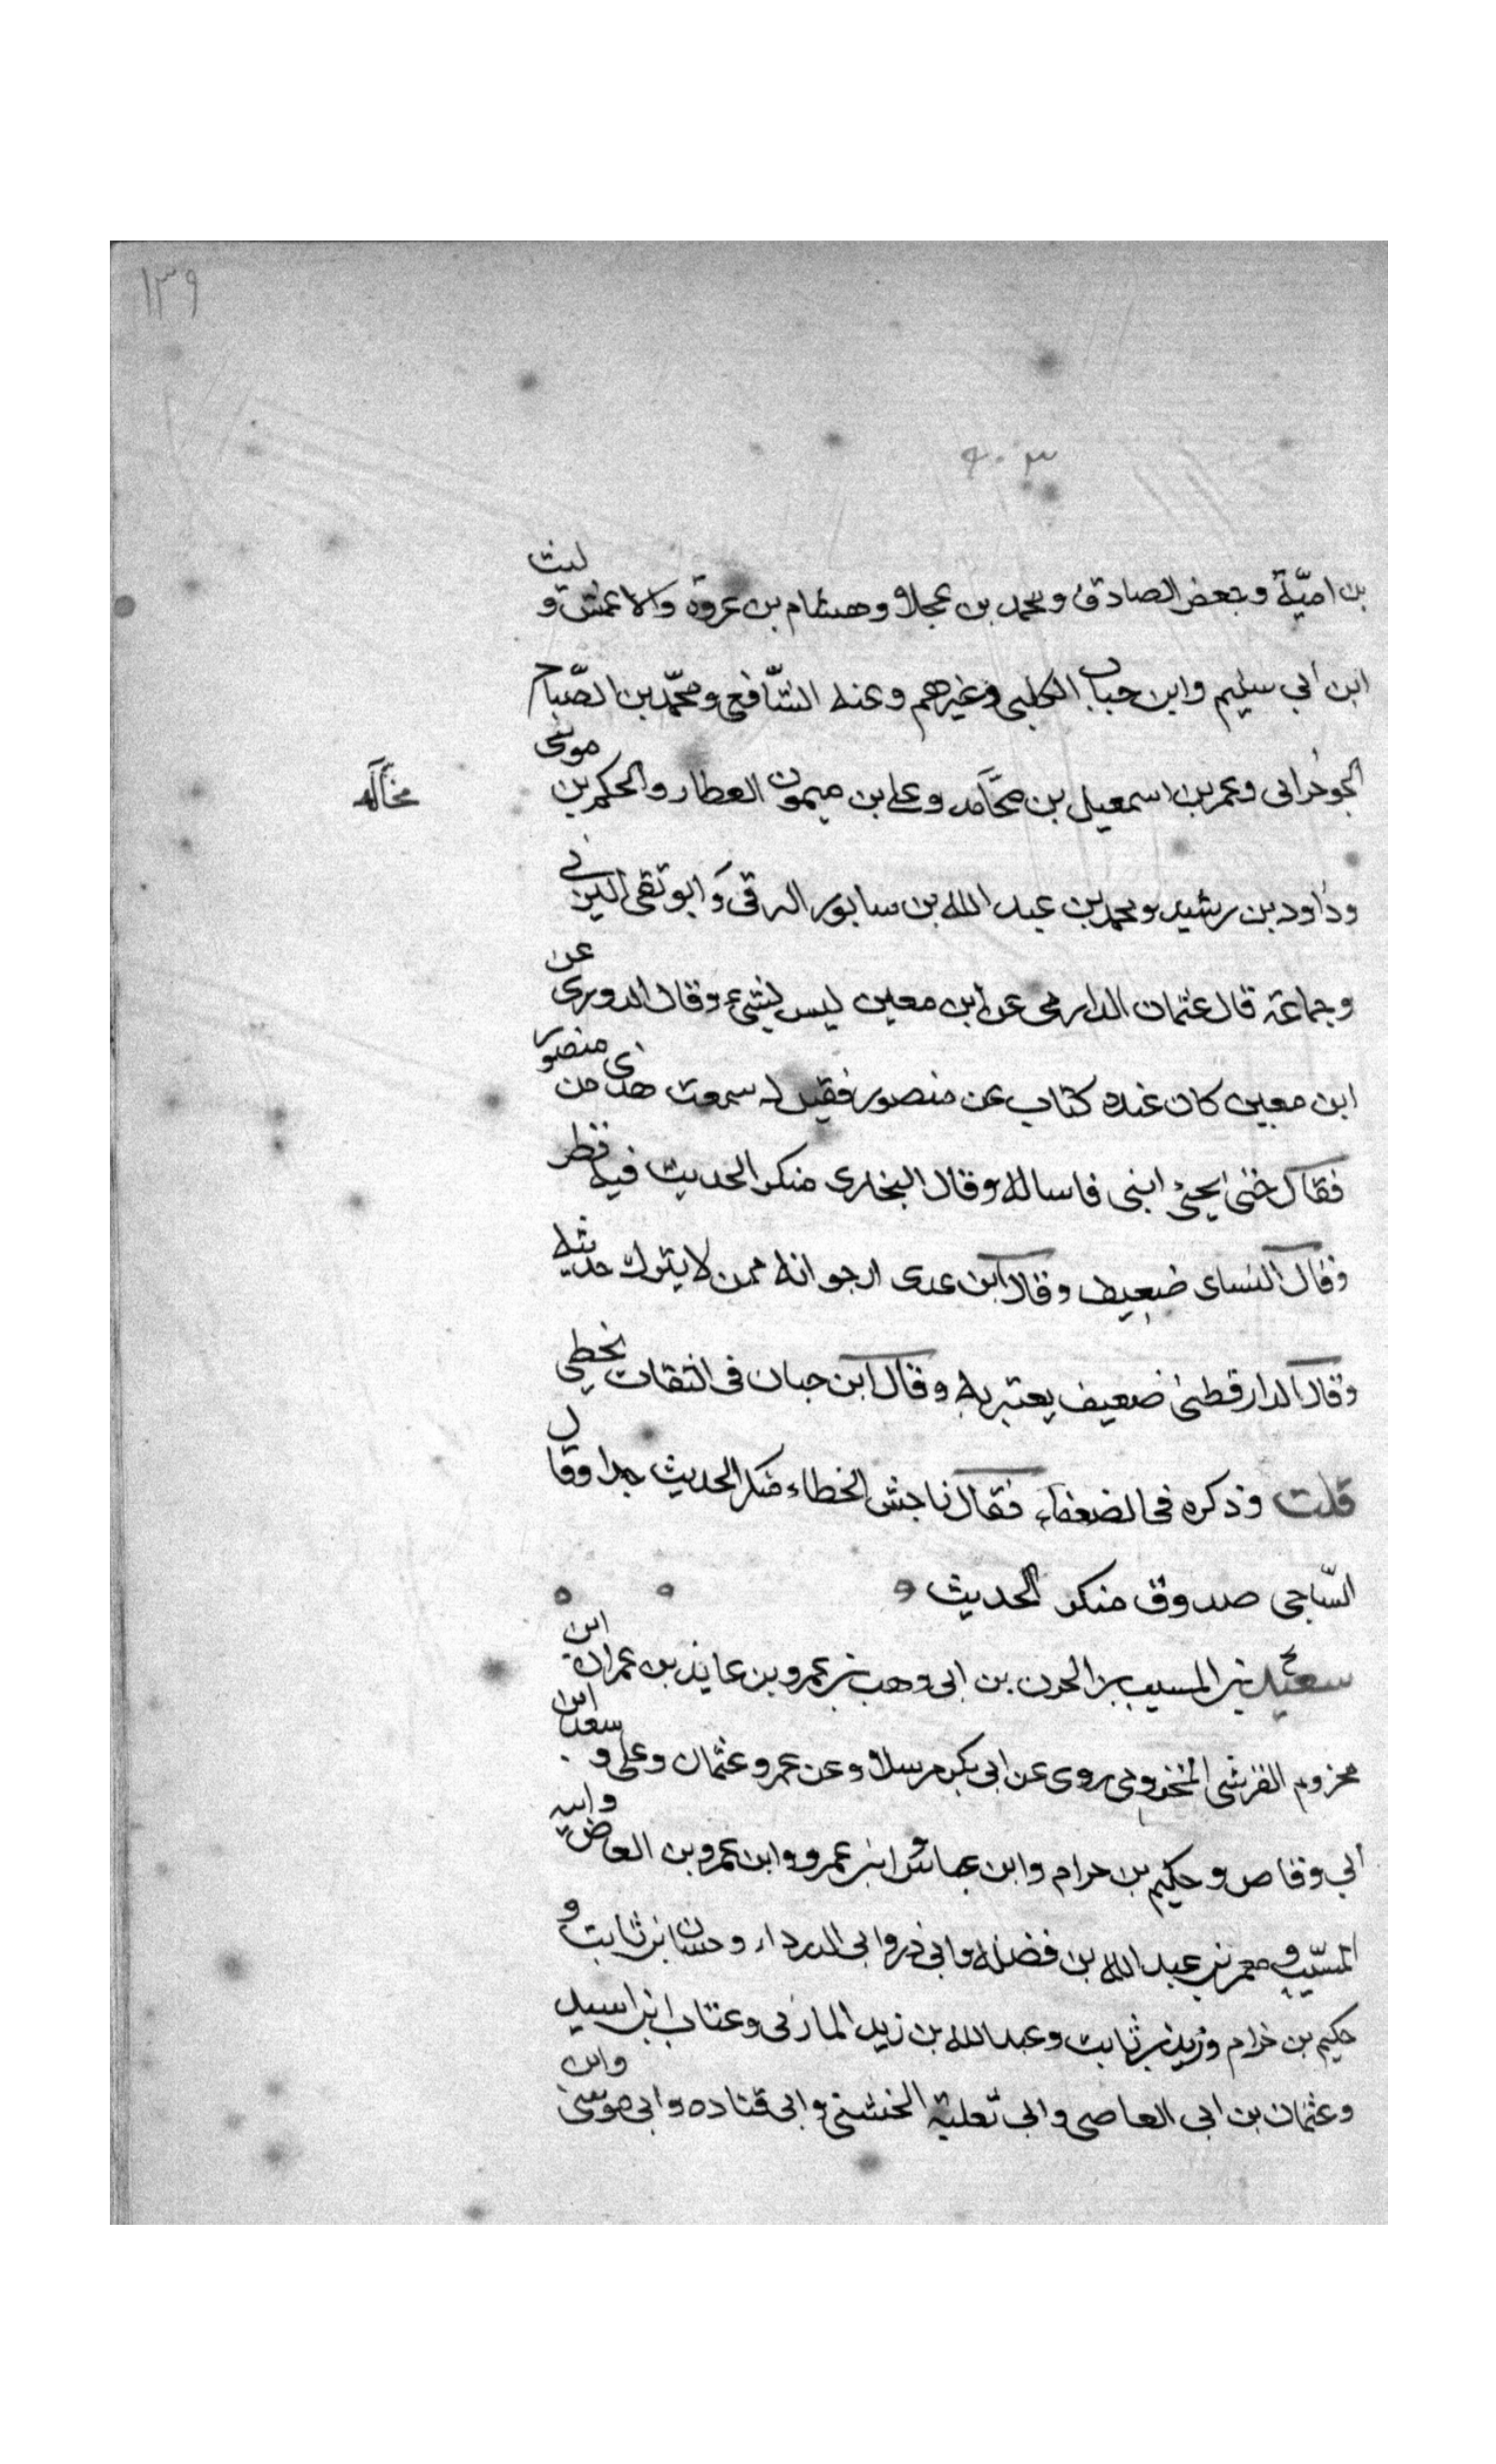 ١٣٩
٩٠٣
بن اميّة وجعفر الصادق ومحمد بن عجلان وهشام بن عروة والاعمش وليث
ابن ابي سليم وابن حباب الكلبي وغيرهم وعنه الشافعي ومحمّد بن الصّباح
الجوجرابي وعمر بن اسمعيل بن مجالد وعلي بن ميمون العطار والحكم بن موسى
مجالد
وداود بن رشيد ومحمد بن عبد الله بن سابور الرقي وابو تقي اليزني
وجماعة قال عثمان الدارمي عن ابن معين ليس بشيء وقال الدوري عن
ابن معين كان عنده كتاب عن منصور فقيل له سمعت هذى من منصور
فقال حتى يجئ ابني فاساله وقال البخاري منكر الحديث فيه نظر
وقال النساى ضعيف وقال ابن عدى ارجو انه ممن لا يترك حديثه
وقال الدارقطنى ضعيف يعتبر به وقال ابن حبان في الثقات يخطي
قلت وذكره في الضعفاء فقال فاحش الخطاء منكر الحديث جدا وقال
السّاجي صدوق منكر الحديث
سعيد بن المسيب بن الحزن بن ابي وهب بن عمرو بن عايذ بن عمران ابن
مخزوم القرشي المخزومي روى عن ابي بكر مرسلا وعن عمر وعثمان وعلي وسعد ابن
ابي وقاص وحكيم بن حرام وابن عباس وابن عمر وابن عمرو بن العاص وابيه
المسيّب ومعمر بن عبد الله بن فضله وابي ذر وابي الدرداء وحسان بن ثابت و
حكيم بن خرام وزيد بن ثابت وعبد الله بن زيد المازني وعتاب ابن اسيد
وعثمان بن ابي العاصي وابي ثعلبة الخشني وابي قتاده وابي موسى وابن